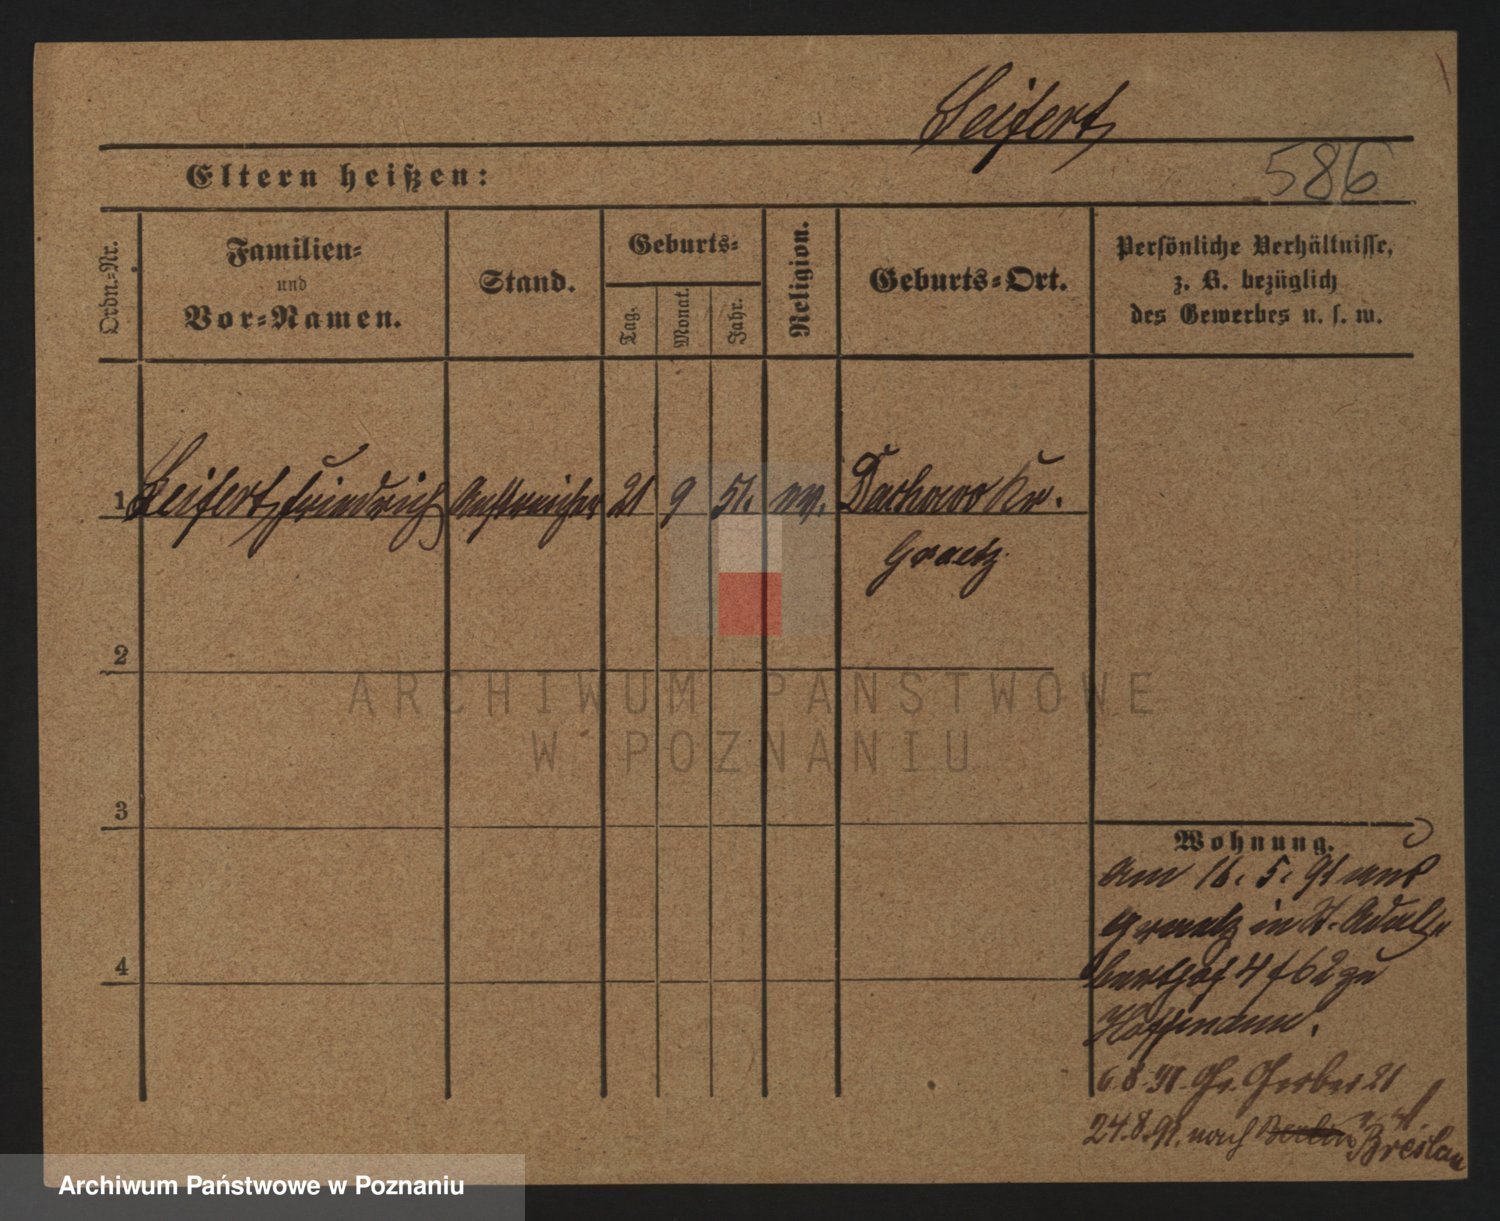 Seifert
586
Eltern heißen:
Ordn.-Nr.
Familien-
und
Vor-Namen.
Stand.
Geburts-
Tag.
Monat.
Jahr.
Religion.
Geburts-Ort.
Persönliche Verhältnisse,
z. B. bezüglich
des Gewerbes u. s. w.
1 Seifert, Friedrich Anstreicher 21 9 51. ev. Dachowo Kr.
Graetz
2
ARCHIWUM PAŃSTWOWE
W POZNANIU
3
Wohnung.
Am 16. 5. 91 aus
Graetz in St. Adal-
4
bertstr 4 f 62 zu
Hoffmann.
6.8.91. Gr. Gerber 21
24.8.91. nach Berlin Breslau
Archiwum Państwowe w Poznaniu